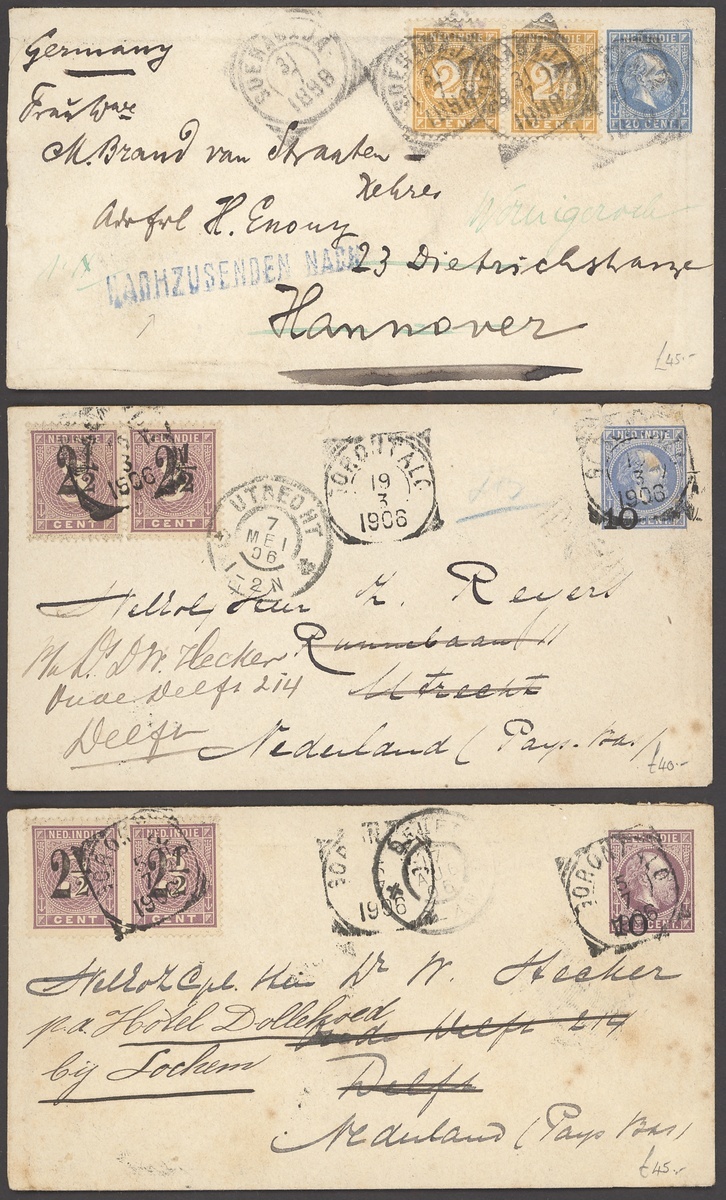 Germany
SOERABAJA
31
7
1898
NED.INDIE
2½
CENT
2½
CENT
NED.INDIE
20 CENT
Frau Wwe
M. Brand van Straaten
Adr Frl H. Enouy
23 Dietrichstrasse
NACHZUSENDEN NACH
Hannover
£45.-
NED.INDIE
2½
CENT
NED.INDIE
2½
CENT
3
1906
UTRECHT
7
MEI
06
1-2N
GORONTALO
19
3
1906
NED.INDIE
3
1906
10
WelEd. Heer
Utrecht
Dr. W. Hecker
Oude Delft 214
Delft
Nederland (Pays-Bas)
£40.-
NED.INDIE
2½
CENT
NED.INDIE
2½
CENT
1906
1906
GORONTALO
5
7
10
Heer Dr W. Hecker
p.a. Hotel Dollehoed
Oude Delft 214
bij Lochem
Delft
Nederland (Pays Bas)
£45.-